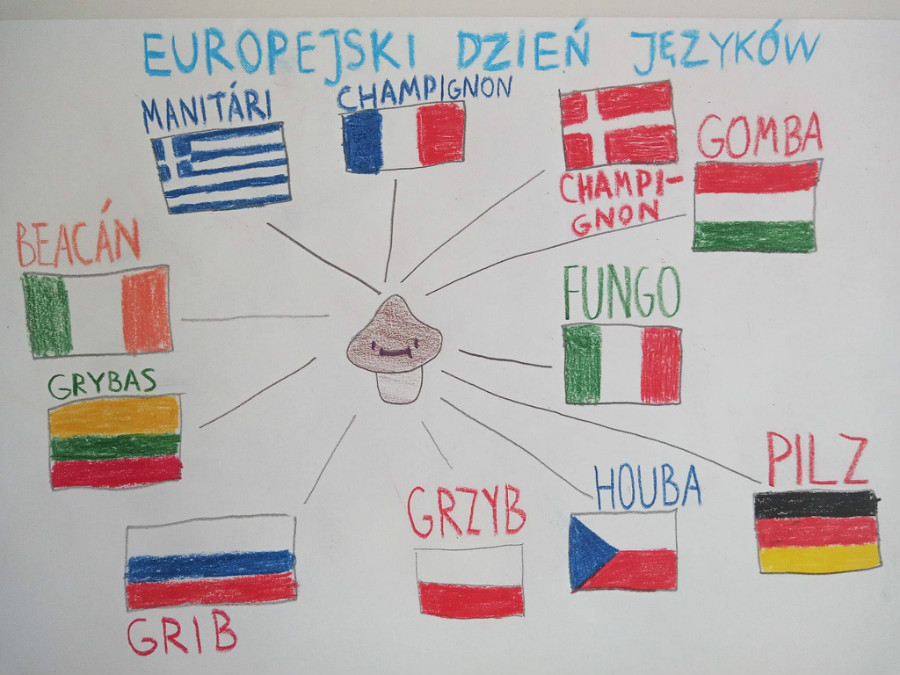 EUROPEJSKI DZIEŃ JĘZYKÓW
MANITÁRI
CHAMPIGNON
CHAMPI-
GNON
GOMBA
BEACÁN
FUNGO
GRYBAS
PILZ
HOUBA
GRZYB
GRIB